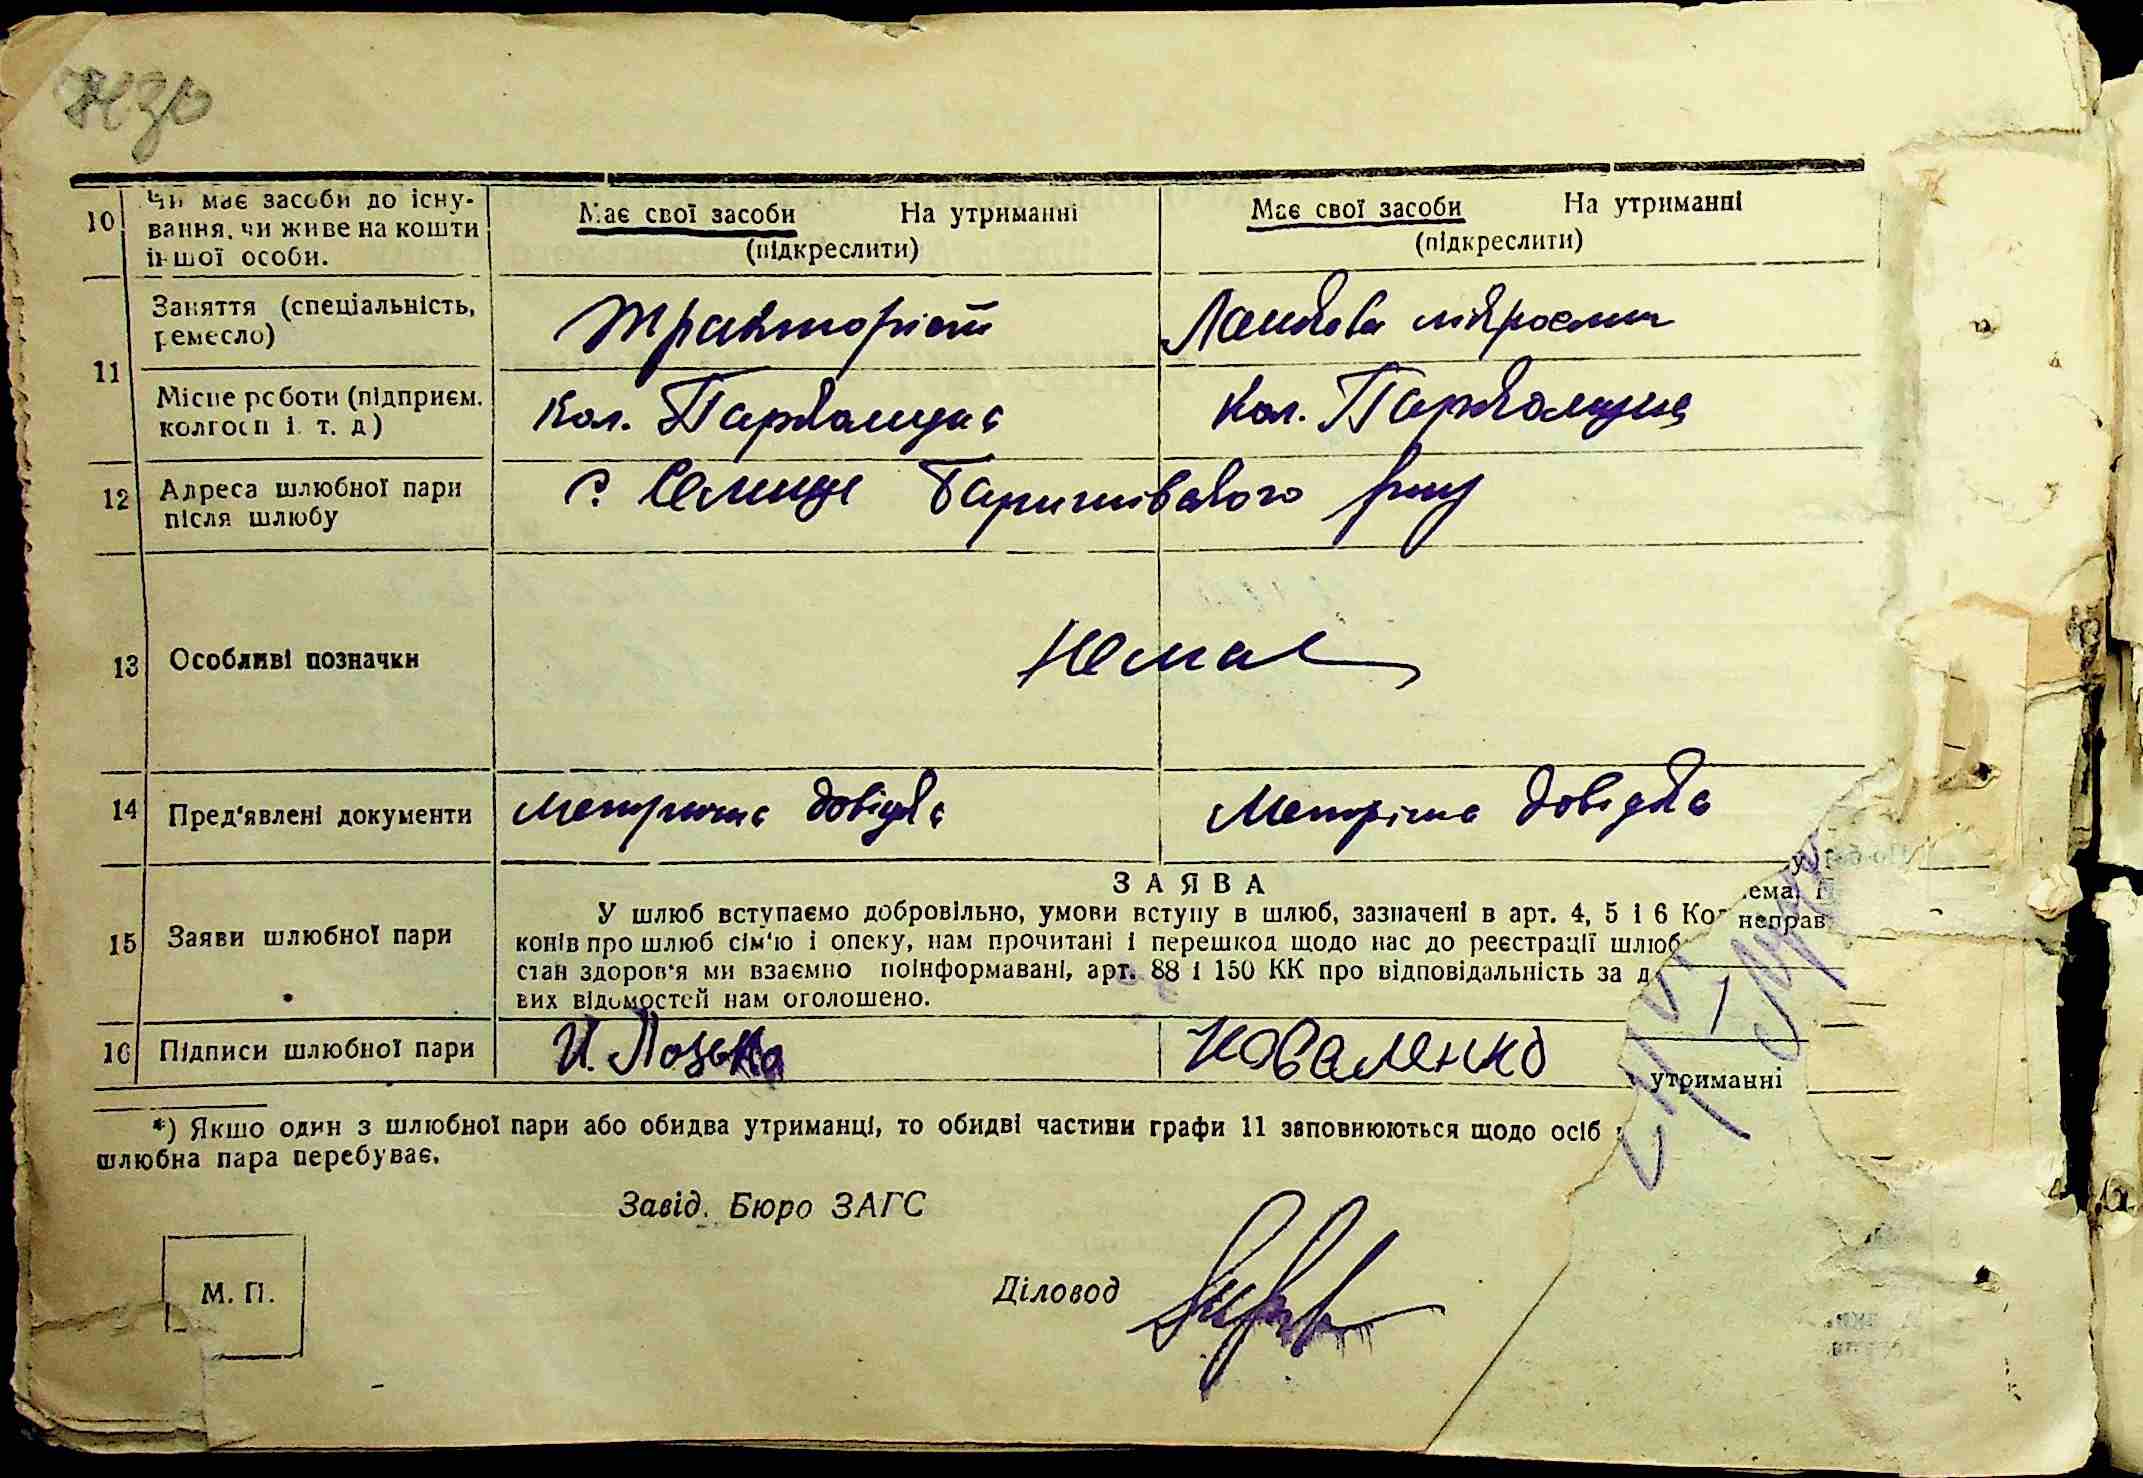 10 Чи має засоби до існу-
вання, чи живе на кошти
іншої особи.
Має свої засоби На утриманні
(підкреслити)
Має свої засоби На утриманні
(підкреслити)
11 Заняття (спеціальність,
ремесло)
Тракторіст
Ланкова
Місце роботи (підприєм.
колгосп і. т. д)
Кол. Парткомуна
Кол. Парткомуна
12 Адреса шлюбної пари
після шлюбу
с. Селище Баришівського р-ну
13 Особливі позначки
Немає
14 Пред'явлені документи
Метрична довідка
Метрічна довідка
15 Заяви шлюбної пари
ЗАЯВА
У шлюб вступаємо добровільно, умови вступу в шлюб, зазначені в арт. 4, 5 і 6 Ко
конів про шлюб сім'ю і опеку, нам прочитані і перешкод щодо нас до реєстрації шлюб
стан здоров'я ми взаємно поінформавані, арт. 88 і 150 КК про відповідальність за д
вих відомостей нам оголошено.
ема.
неправ
16 Підписи шлюбної пари
И. Лозько
Коваленко
утриманні
*) Якшо один з шлюбної пари або обидва утриманці, то обидві частини графи 11 заповнюються щодо осіб
шлюбна пара перебуває.
Завід. Бюро ЗАГС
М. П.
Діловод